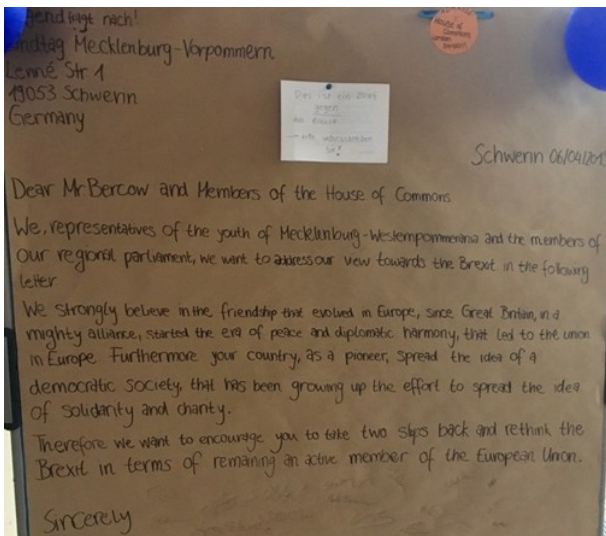 gend fragt nach!
ndtag Mecklenburg-Vorpommern
Lenné Str 1
19053 Schwerin
Germany
House of
Commons
London
Dies ist ein Brief
gegen
den Brexit
Schwerin 06/04/201
Dear Mr Bercow and Members of the House of Commons
We, representatives of the youth of Mecklenburg-Westernpommerania and the members of
our regional parliament, we want to address our view towards the Brexit in the following
letter
We strongly believe in the friendship that evolved in Europe, since Great Britain, in a
mighty alliance, started the era of peace and diplomatic harmony, that led to the union
in Europe. Furthermore your country, as a pioneer, spread the idea of a
democratic society, that has been growing up the effort to spread the idea
of solidarity and charity.
Therefore we want to encourage you to take two steps back and rethink the
Brexit in terms of remaining an active member of the European Union.
Sincerely